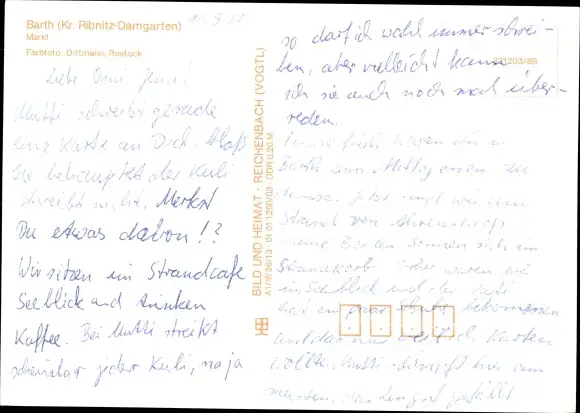 Barth (Kr. Ribnitz-Damgarten)
Markt
Farbfoto: Dittmann, Rostock
Liebe Omi
Mutti schreibt gerade
eine Karte an Dich. Bloß
Sie behauptet der Kuli
schreibt nicht. Merkst
Du etwas davon!?
Wir sitzen im Strandcafe
Seeblick und trinken
Kaffee. Bei Mutti streikt
scheinbar jeder Kuli, naja
BILD UND HEIMAT · REICHENBACH (VOGTL)
A1/III/26/13 · 01 01 1250/03 · DDR 0,20 M
so darf ich wohl immer schrei-
ben, aber vielleicht kann
ich sie auch noch mal über-
reden.
früh waren wir in
Barth zum Mittagessen zu
Hause. Jetzt sind wir am
Strand von Ahrenshoop
meine Beiden sonnen sich im
Strandkorb. Vorher waren wir
im Seeblick und der
hat ein paar bekommen
und das nur weil ich Karten
wollte. Mutti